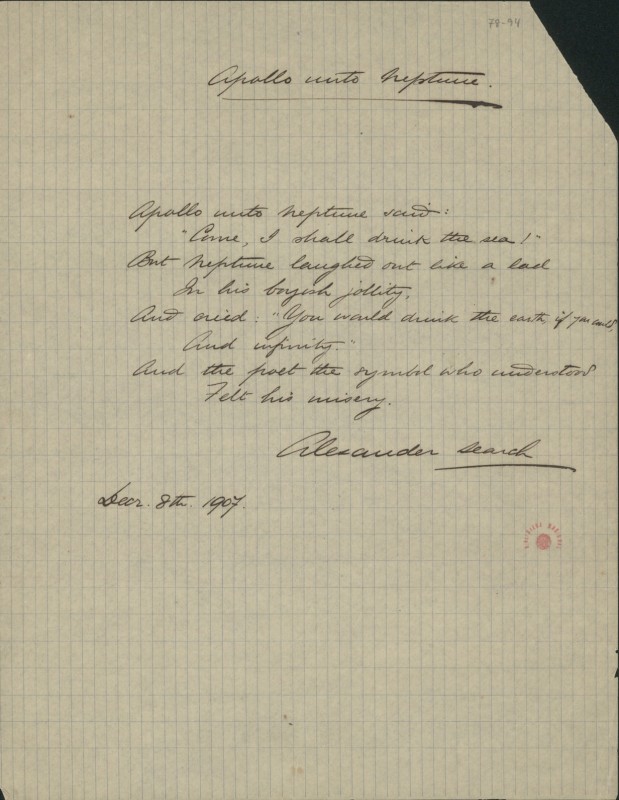 78-94
Apollo unto Neptune.
Apollo unto Neptune said:
"Come, I shall drink the sea!"
But Neptune laughed out like a lad
In his boyish jollity,
And cried: "You would drink the earth, if you could,
And infinity."
And the poet the symbol who understood
Felt his misery.
Alexander Search
Decr. 8th. 1907.